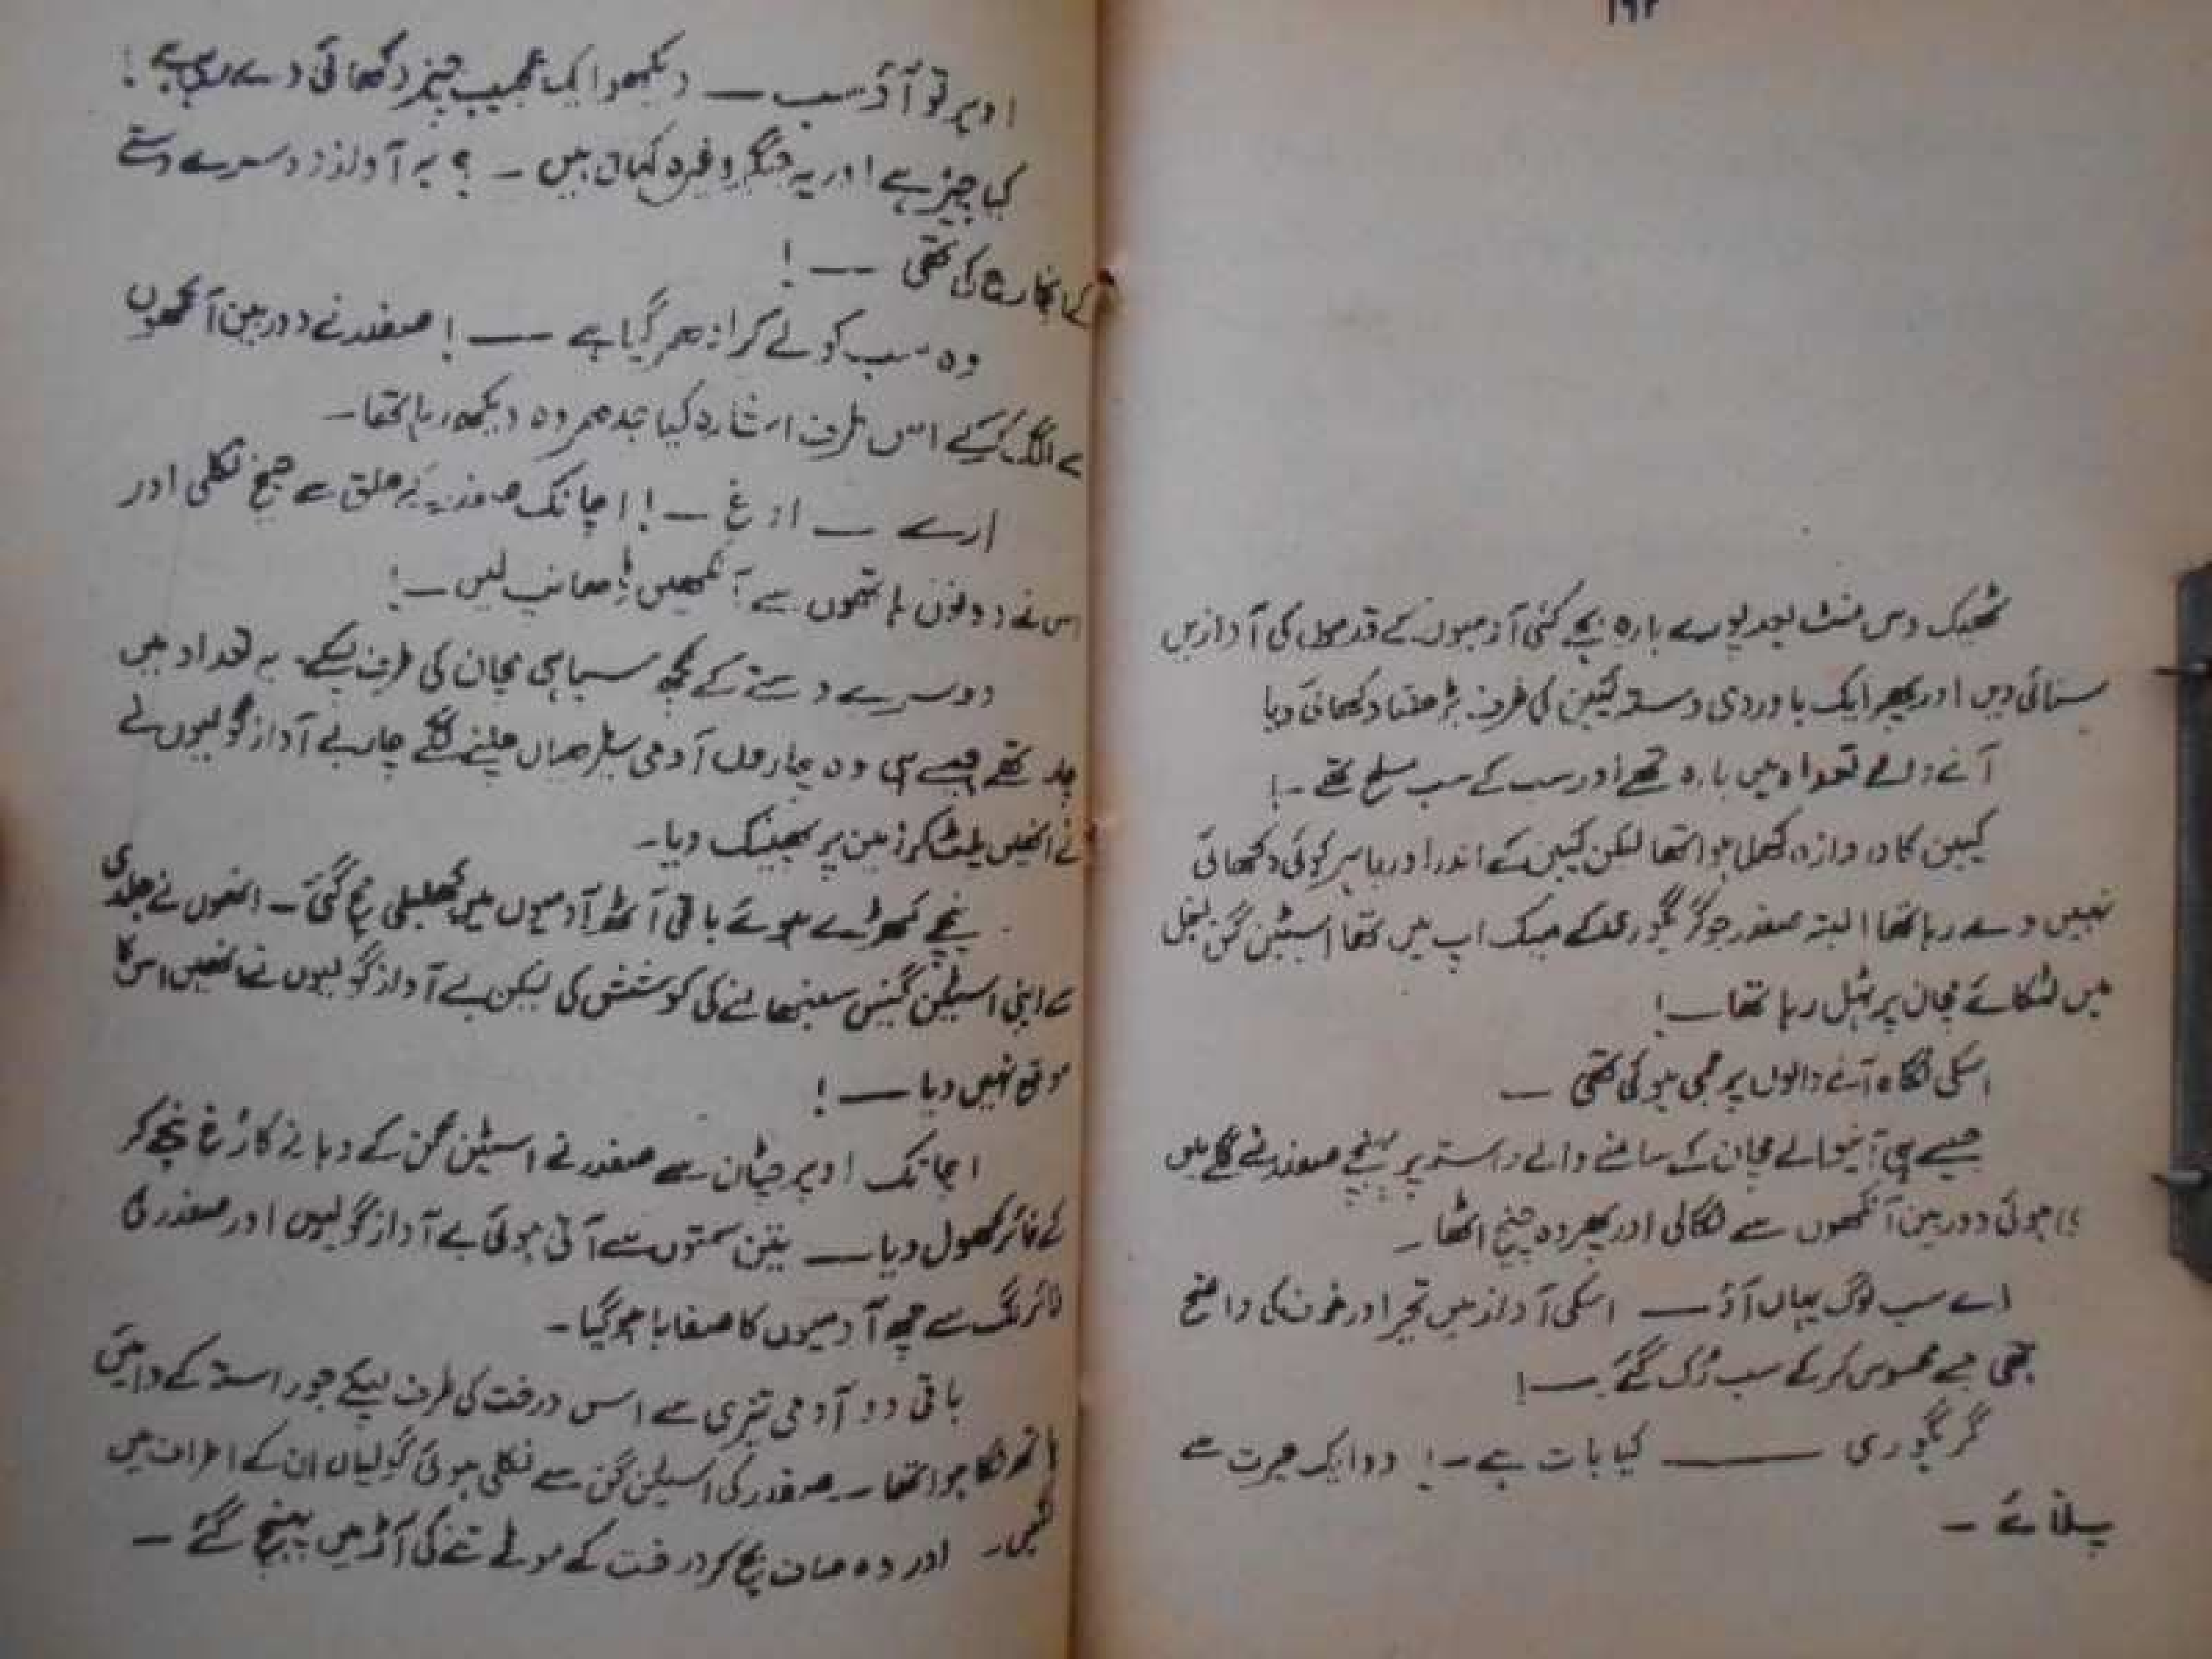 ۱۹۲
ٹھیک دس منٹ بعد پورے بارہ بجے کئی آدمیوں کے قدموں کی آوازیں
سنائی دیں اور پھر ایک باوردی دستہ کیبن کی طرف بڑھتا دکھائی دیا
آنے والے تعداد میں بارہ تھے اور سب کے سب مسلح تھے ۔!
کیبن کا دروازہ کھلا ہوا تھا لیکن کیبن کے اندر اور باہر کوئی دکھائی
نہیں دے رہا تھا البتہ صفدر جو گریگوری کے میک اپ میں تھا اسٹین گن بغل
میں لٹکائے مچان پر ٹہل رہا تھا ــ!
اسکی نگاہ آنے والوں پر جمی ہوئی تھی ــ
جیسے ہی آنیوالے مچان کے سامنے والے راستہ پر پہنچے صفدر نے گلے میں
ہوئی دوربین آنکھوں سے لگالی اور پھر وہ چیخ اٹھا ۔
اے سب لوگ یہاں آؤ ــ اسکی آواز میں تحیر اور خوف کی واضح
تھی جسے محسوس کر کے سب رک گئے ــ!
گریگوری ــــــ کیا بات ہے ۔! دو ایک حیرت سے
چلائے ۔
اوپر تو آؤ سب ــ دیکھو ایک عجیب چیز دکھائی دے رہی ہے !
کیا چیز ہے اور یہ جیگر وغیرہ کہاں ہیں ۔ ؟ یہ آواز دوسرے دستے
کے انچارج کی تھی ــ!
وہ سب کو لے کر ادھر گیا ہے ــ! صفدر نے دوربین آنکھوں
سے الگ کر کے اس طرف اشارہ کیا جدھر وہ دیکھ رہا تھا ۔
ارے ــ ارغ ــ! اچانک صفدر کے حلق سے چیخ نکلی اور
اس نے دونوں ہاتھوں سے آنکھیں ڈھانپ لیں ــ!
دوسرے دستے کے کچھ سپاہی مچان کی طرف لپکے ۔ یہ تعداد میں
چار تھے جیسے ہی وہ چاروں آدمی سیڑھیاں چڑھنے لگے چار بے آواز گولیوں نے
نے انھیں پلٹ کر زمین پر پھینک دیا ۔
نیچے کھڑے ہوئے باقی آٹھ آدمیوں میں کھلبلی مچ گئی ۔ انھوں نے جلدی
سے اپنی اسٹین گنیں سنبھالنے کی کوشش کی لیکن بے آواز گولیوں نے انھیں اس کا
موقع نہیں دیا ــ!
اچانک اوپر چٹان سے صفدر نے اسٹین گن کے دہانے کا رُخ نیچے کر
کے فائر کھول دیا ــ تین سمتوں سے آتی ہوئی بے آواز گولیوں اور صفدر کی
فائرنگ سے چھ آدمیوں کا صفایا ہو گیا ۔
باقی دو آدمی تیزی سے اس درخت کی طرف لپکے جو راستہ کے دائیں
ہاتھ لگا ہوا تھا ۔ صفدر کی اسٹین گن سے نکلی ہوئی گولیاں ان کے اطراف میں
لگیں ۔ اور وہ صاف بچ کر درخت کے موٹے تنے کی آڑ میں پہنچ گئے ۔